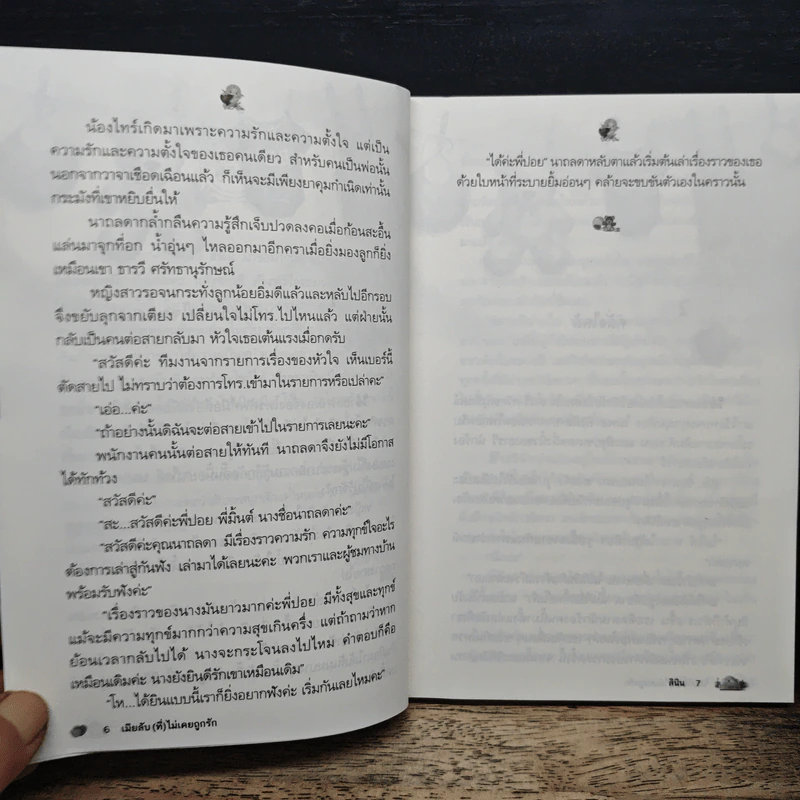 น้องไทร์เกิดมาเพราะความรักและความตั้งใจ แต่เป็น
ความรักและความตั้งใจของเธอคนเดียว สำหรับคนเป็นพ่อนั้น
นอกจากวาจาเชือดเฉือนแล้ว ก็เห็นจะมีเพียงยาคุมกำเนิดเท่านั้น
กระมังที่เขาหยิบยื่นให้
นาถลดากล้ำกลืนความรู้สึกเจ็บปวดลงคอเมื่อก้อนสะอื้น
แล่นมาจุกที่อก น้ำอุ่นๆ ไหลออกมาอีกคราเมื่อยิ่งมองลูกก็ยิ่ง
เหมือนเขา ธารวี ศรัทธานุรักษณ์
หญิงสาวรอจนกระทั่งลูกน้อยอิ่มดีแล้วและหลับไปอีกรอบ
จึงขยับลุกจากเตียง เปลี่ยนใจไม่โทร.ไปไหนแล้ว แต่ฝ่ายนั้น
กลับเป็นคนต่อสายกลับมา หัวใจเธอเต้นแรงเมื่อกดรับ
“สวัสดีค่ะ ทีมงานจากรายการเรื่องของหัวใจ เห็นเบอร์นี้
ตัดสายไป ไม่ทราบว่าต้องการโทร.เข้ามาในรายการหรือเปล่าคะ”
“เอ่อ...ค่ะ”
“ถ้าอย่างนั้นดิฉันจะต่อสายเข้าไปในรายการเลยนะคะ”
พนักงานคนนั้นต่อสายให้ทันที นาถลดาจึงยังไม่มีโอกาส
ได้ทักท้วง
“สวัสดีค่ะ”
“สะ...สวัสดีค่ะพี่ปอย พี่มิ้นต์ นางชื่อนาถลดาค่ะ”
“สวัสดีค่ะคุณนาถลดา มีเรื่องราวความรัก ความทุกข์ใจอะไร
ต้องการเล่าสู่กันฟัง เล่ามาได้เลยนะคะ พวกเราและผู้ชมทางบ้าน
พร้อมรับฟังค่ะ”
“เรื่องราวของนางมันยาวมากค่ะพี่ปอย มีทั้งสุขและทุกข์
แม้จะมีความทุกข์มากกว่าความสุขเกินครึ่ง แต่ถ้าถามว่าหาก
ย้อนเวลากลับไปได้ นางจะกระโจนลงไปไหม คำตอบก็คือ
เหมือนเดิมค่ะ นางยังยินดีรักเขาเหมือนเดิม”
“โห...ได้ยินแบบนี้เราก็ยิ่งอยากฟังค่ะ เริ่มกันเลยไหมคะ”
6 เมียลับ (ที่) ไม่เคยถูกรัก
“ได้ค่ะพี่ปอย” นาถลดาหลับตาแล้วเริ่มต้นเล่าเรื่องราวของเธอ
ด้วยใบหน้าที่ระบายยิ้มอ่อนๆ คล้ายจะขบขันตัวเองในคราวนั้น
สินิน 7